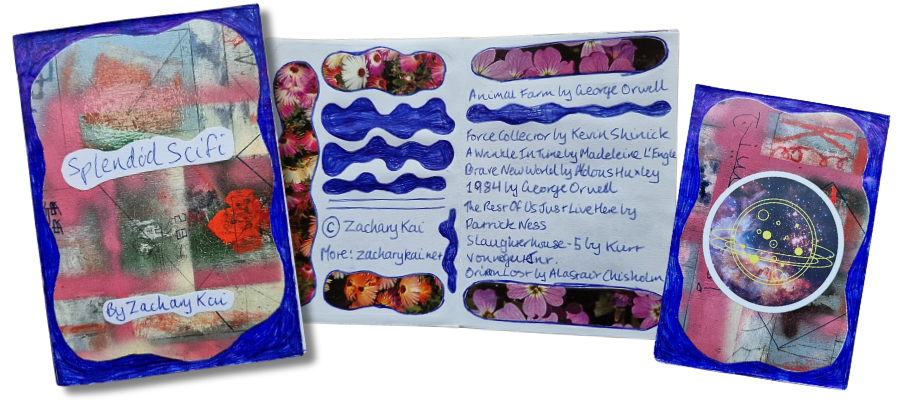 Splendid Scifi
By Zachary Kai
© Zachary Kai
More: zacharykai.net
Animal Farm by George Orwell
Force Collector by Kevin Shinick
A Wrinkle In Time by Madeleine L'Engle
Brave New World by Aldous Huxley
1984 by George Orwell
The Rest Of Us Just Live Here by
Patrick Ness
Slaughterhouse-5 by Kurt
Vonnegut Jnr.
Orion Lost by Alastair Chisholm